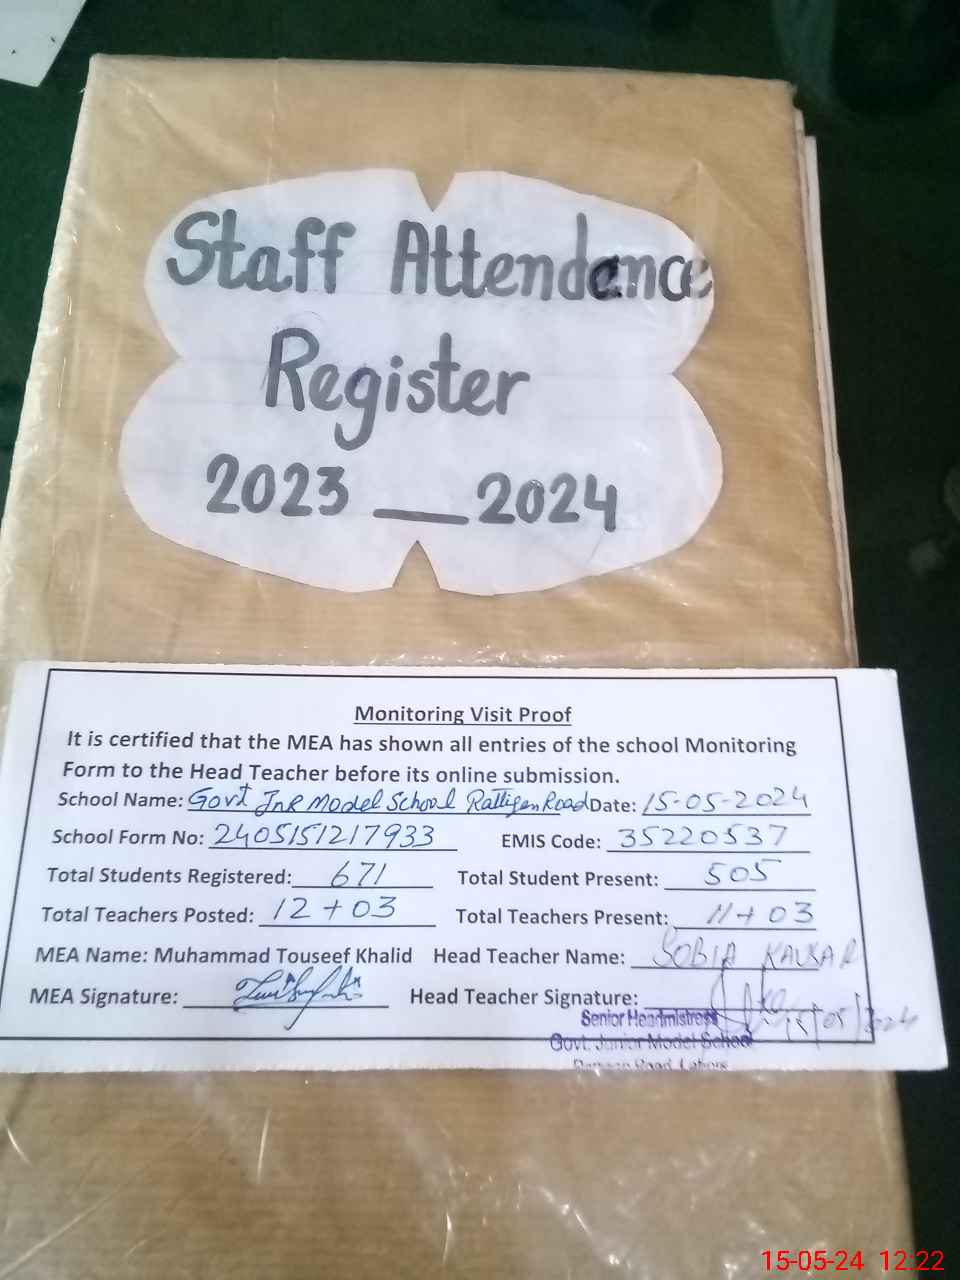 Staff Attendance
Register
2023 __ 2024
Monitoring Visit Proof
It is certified that the MEA has shown all entries of the school Monitoring
Form to the Head Teacher before its online submission.
School Name: Govt Jnr Model School Rattigan Road Date: 15-05-2024
School Form No: 2405151217933 EMIS Code: 35220537
Total Students Registered: 671 Total Student Present: 505
Total Teachers Posted: 12 + 03 Total Teachers Present: 11 + 03
MEA Name: Muhammad Touseef Khalid Head Teacher Name: SOBIA KAUSAR
MEA Signature: Head Teacher Signature:
Senior Headmistress 15/05/2024
Govt. Junior Model School
Road, Lahore
15-05-24 12:22